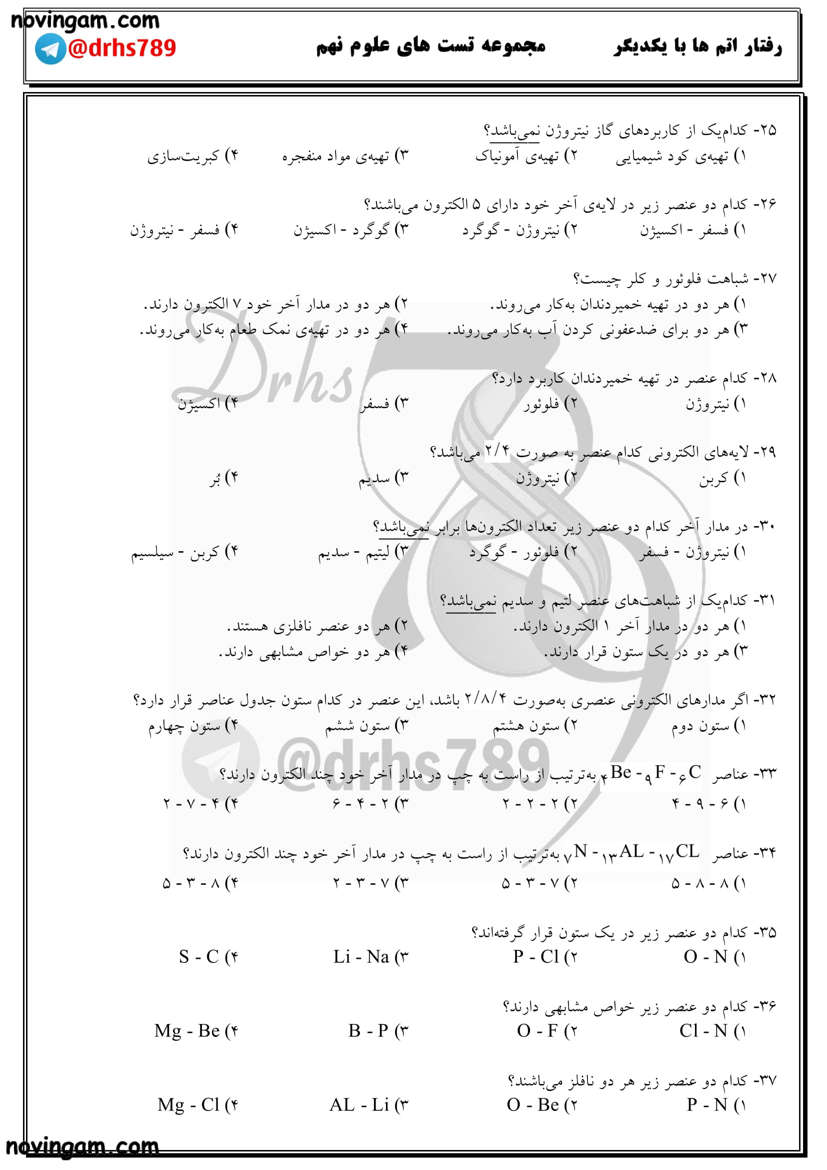 novingam.com
@drhs789
رفتار اتم ها با یکدیگر مجموعه تست های علوم نهم
۲۵- کدام‌یک از کاربردهای گاز نیتروژن نمی‌باشد؟
۱) تهیه‌ی کود شیمیایی ۲) تهیه‌ی آمونیاک ۳) تهیه‌ی مواد منفجره ۴) کبریت‌سازی
۲۶- کدام دو عنصر زیر در لایه‌ی آخر خود دارای ۵ الکترون می‌باشند؟
۱) فسفر - اکسیژن ۲) نیتروژن - گوگرد ۳) گوگرد - اکسیژن ۴) فسفر - نیتروژن
۲۷- شباهت فلوئور و کلر چیست؟
۱) هر دو در تهیه خمیردندان به‌کار می‌روند. ۲) هر دو در مدار آخر خود ۷ الکترون دارند.
۳) هر دو برای ضدعفونی کردن آب به‌کار می‌روند. ۴) هر دو در تهیه‌ی نمک طعام به‌کار می‌روند.
۲۸- کدام عنصر در تهیه خمیردندان کاربرد دارد؟
۱) نیتروژن ۲) فلوئور ۳) فسفر ۴) اکسیژن
۲۹- لایه‌های الکترونی کدام عنصر به صورت ۲/۴ می‌باشد؟
۱) کربن ۲) نیتروژن ۳) سدیم ۴) بُر
۳۰- در مدار آخر کدام دو عنصر زیر تعداد الکترون‌ها برابر نمی‌باشد؟
۱) نیتروژن - فسفر ۲) فلوئور - گوگرد ۳) لیتیم - سدیم ۴) کربن - سیلسیم
۳۱- کدام‌یک از شباهت‌های عنصر لتیم و سدیم نمی‌باشد؟
۱) هر دو در مدار آخر ۱ الکترون دارند. ۲) هر دو عنصر نافلزی هستند.
۳) هر دو در یک ستون قرار دارند. ۴) هر دو خواص مشابهی دارند.
۳۲- اگر مدارهای الکترونی عنصری به‌صورت ۲/۸/۴ باشد، این عنصر در کدام ستون جدول عناصر قرار دارد؟
۱) ستون دوم ۲) ستون هشتم ۳) ستون ششم ۴) ستون چهارم
۳۳- عناصر ₄Be - ₉F - ₆C به‌ترتیب از راست به چپ در مدار آخر خود چند الکترون دارند؟
۱) ۶ - ۹ - ۴ ۲) ۲ - ۲ - ۲ ۳) ۲ - ۴ - ۶ ۴) ۴ - ۷ - ۲
۳۴- عناصر ₇N - ₁₃AL - ₁₇CL به‌ترتیب از راست به چپ در مدار آخر خود چند الکترون دارند؟
۱) ۸ - ۸ - ۵ ۲) ۷ - ۳ - ۵ ۳) ۷ - ۳ - ۲ ۴) ۸ - ۳ - ۵
۳۵- کدام دو عنصر زیر در یک ستون قرار گرفته‌اند؟
۱) O - N ۲) P - Cl ۳) Li - Na ۴) S - C
۳۶- کدام دو عنصر زیر خواص مشابهی دارند؟
۱) Cl - N ۲) O - F ۳) B - P ۴) Mg - Be
۳۷- کدام دو عنصر زیر هر دو نافلز می‌باشند؟
۱) P - N ۲) O - Be ۳) AL - Li ۴) Mg - Cl
Drhs
789
@drhs789
novingam.com